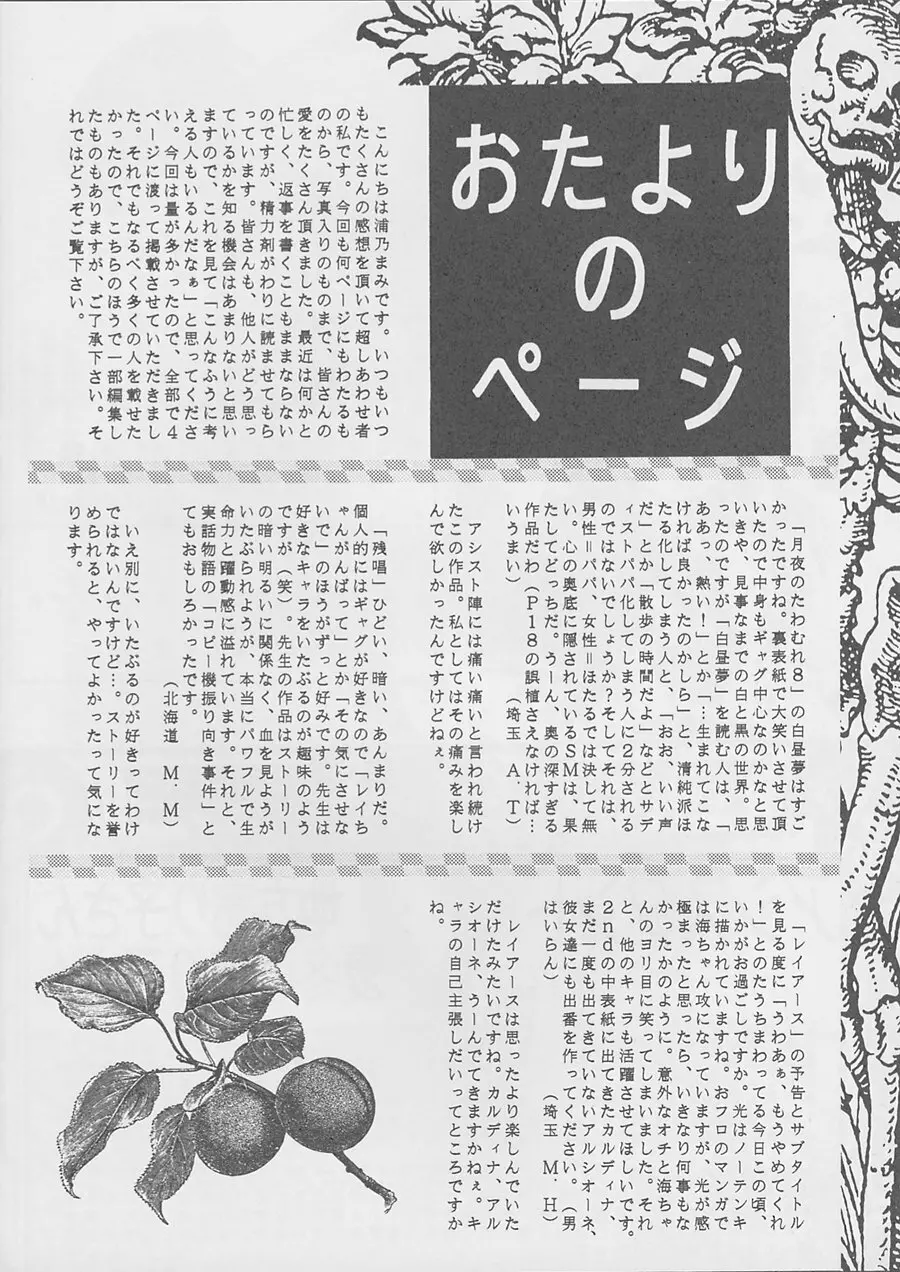 おたより
の
ページ
こんにちは浦乃まみです。いつもいつ
もたくさんの感想を頂いて超しあわせ者
の私です。今回も何ページにもわたるも
のから、写真入りのものまで、皆さんの
愛をたくさん頂きました。最近は何かと
忙しく、返事を書くこともままならない
のですが、精力剤がわりに読ませてもら
っています。皆さんも、他人がどう思っ
ているかを知る機会はあまりないと思い
ますので、これを見て「こんなふうに考
える人もいるんだなぁ」と思ってくださ
い。今回は量が多かったので、全部で４
ページに渡って掲載させていただきまし
た。それでもなるべく多くの人を載せた
かったので、こちらのほうで一部編集し
たものもありますが、ご了承下さい。そ
れではどうぞご覧下さい。
「月夜のたわむれ８」の白昼夢はすご
かったですね。裏表紙で大笑いさせて頂
いたので中身もギャグ中心なのかなと思
いきや、見事なまでの白と黒の世界。思
ったのですが「白昼夢」を読む人は、「
ああっ、熱い！」とか「…生まれてこな
ければ良かったのかしら」と、清純派ほ
たる化してしまう人と、「おお、いい声
だ」とか「散歩の時間だよ」などとサデ
ィストパパ化してしまう人に２分される
のではないでしょうか？そしてそれは、
男性＝パパ、女性＝ほたるでは決して無
い。心の奥底に隠されているＳＭは、果
たしてどっちだ。うーん、奥の深すぎる
作品だわ（Ｐ１８の誤植さえなければ…
いうまい）　　　　　（埼玉　Ａ．Ｔ）
アシスト陣には痛い痛いと言われ続け
たこの作品。私としてはその痛みを楽し
んで欲しかったんですけどねぇ。
「残唱」ひどい、暗い、あんまりだ。
個人的にはギャグが好きなので「レイち
ゃんがんばって」とか「その気にさせな
いで」のほうがずっと好みです。先生は
好きなキャラをいたぶるのが趣味のよう
ですが（笑）。先生の作品はストーリー
の暗い明るいに関係なく、血を見ようが
いたぶられようが、本当にパワフルで生
命力と躍動感に溢れています。それと、
実話物語の「コピー機振り向き事件」と
てもおもしろかったです。
（北海道　Ｍ．Ｍ）
いえ別に、いたぶるのが好きってわけ
ではないんですけど…。ストーリーを誉
められると、やってよかったって気にな
ります。
「レイアース」の予告とサブタイトル
を見る度に「うわあぁ、もうやめてくれ
！」とのたうちまわってる今日この頃、
いかがお過ごしですか。光はノーテンキ
に描かれていますね。おフロのマンガで
は海ちゃん攻になっていますが、光が感
極まったと思ったら、いきなり何事もな
かったかのように。意外なオチと海ちゃ
んのヨリ目に笑ってしまいました。それ
と、他のキャラも活躍させてほしいです。
２ｎｄの中表紙に出てきたカルディナ、
まだ一度も出てきていないアルシオーネ、
彼女達にも出番を作ってください。（男
はいらん）　　　　　（埼玉　Ｍ．Ｈ）
レイアースは思ったより楽しんでいた
だけたみたいですね。カルディナ、アル
シオーネ、うーんでてきますかねぇ。キ
ャラの自己主張しだいってところですか
ね。